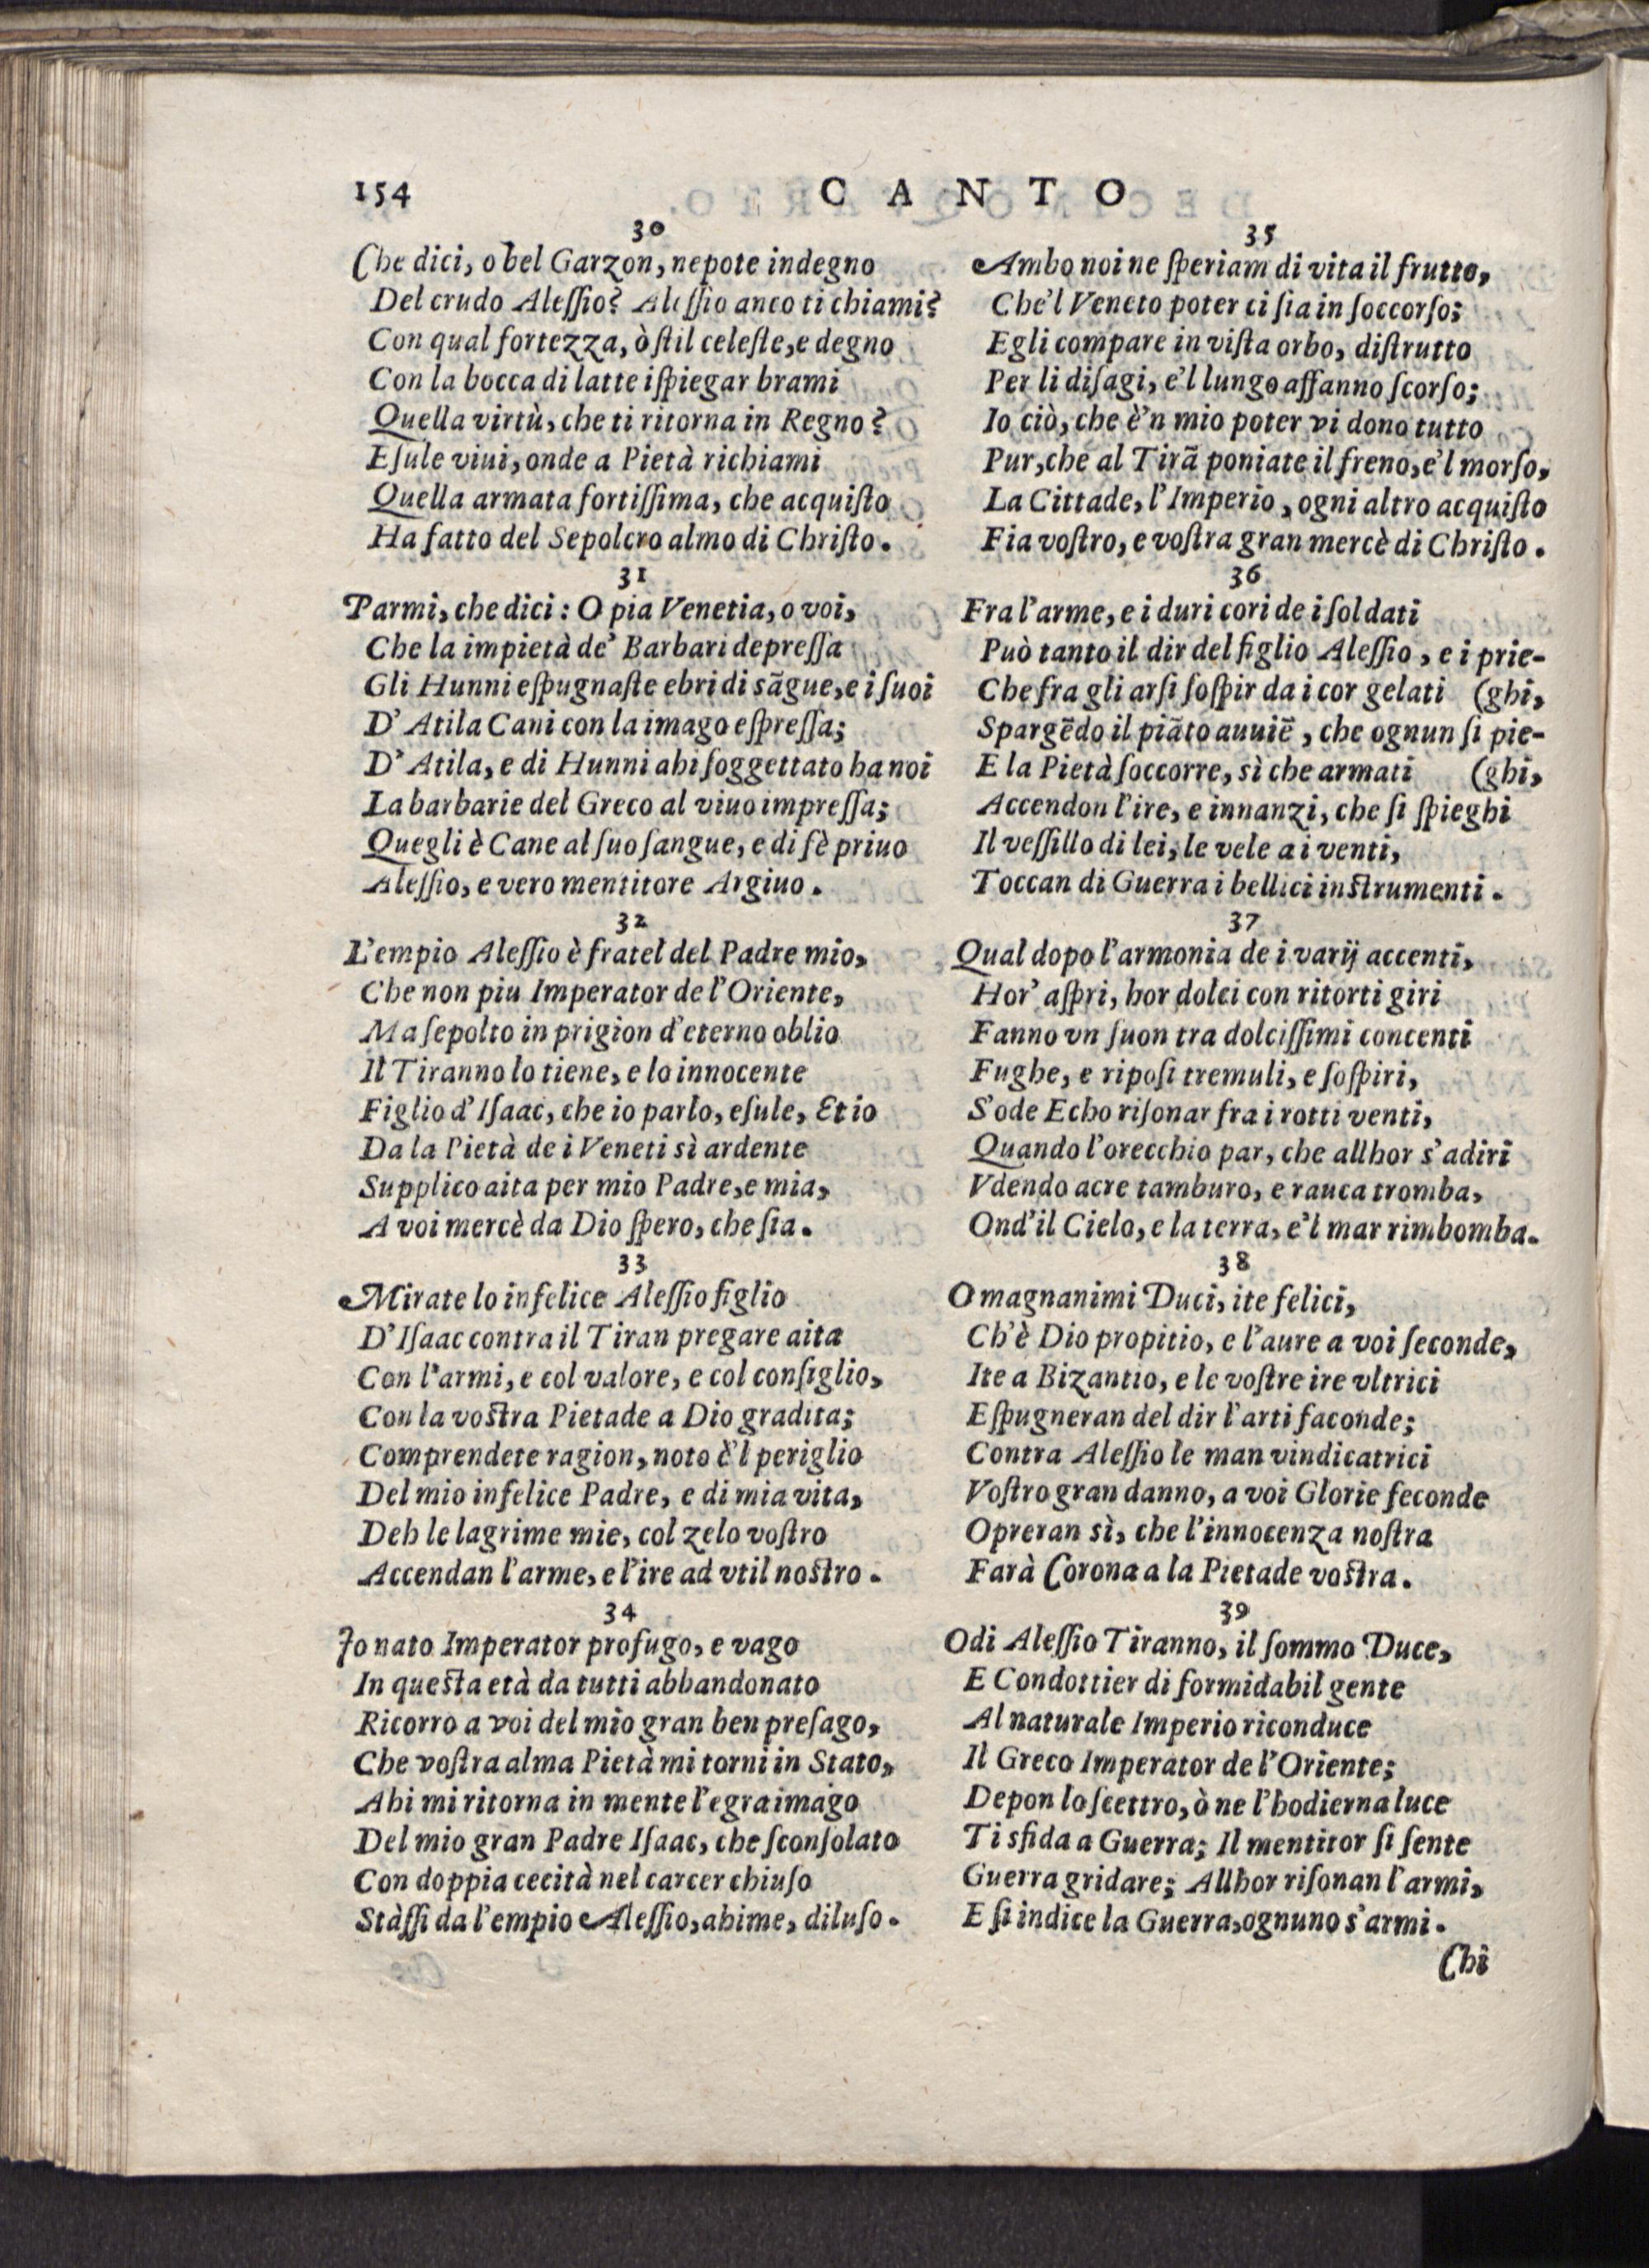 154 CANTO
30
Che dici, o bel Garzon, nepote indegno
Del crudo Aleſſio? Aleſſio anco ti chiami?
Con qual fortezza, ò ſtil celeſte, e degno
Con la bocca di latte iſpiegar brami
Quella virtù, che ti ritorna in Regno?
Eſule viui, onde a Pietà richiami
Quella armata fortiſſima, che acquiſto
Ha fatto del Sepolcro almo di Chriſto.
31
Parmi, che dici: O pia Venetia, o voi,
Che la impietà de' Barbari depreſſa
Gli Hunni eſpugnaſte ebri di sãgue, e i ſuoi
D'Atila Cani con la imago eſpreſſa;
D'Atila, e di Hunni ahi ſoggettato ha noi
La barbarie del Greco al viuo impreſſa;
Quegli è Cane al ſuo ſangue, e di fè priuo
Aleſſio, e vero mentitore Argiuo.
32
L'empio Aleſſio è fratel del Padre mio,
Che non piu Imperator de l'Oriente,
Ma ſepolto in prigion d'eterno oblio
Il Tiranno lo tiene, e lo innocente
Figlio d'Iſaac, che io parlo, eſule, Et io
Da la Pietà de i Veneti sì ardente
Supplico aita per mio Padre, e mia,
A voi mercè da Dio ſpero, che ſia.
33
Mirate lo infelice Aleſſio figlio
D'Iſaac contra il Tiran pregare aita
Con l'armi, e col valore, e col conſiglio,
Con la voſtra Pietade a Dio gradita;
Comprendete ragion, noto è'l periglio
Del mio infelice Padre, e di mia vita,
Deh le lagrime mie, col zelo voſtro
Accendan l'arme, e l'ire ad vtil noſtro.
34
Io nato Imperator profugo, e vago
In queſta età da tutti abbandonato
Ricorro a voi del mio gran ben preſago,
Che voſtra alma Pietà mi torni in Stato,
Ahi mi ritorna in mente l'egra imago
Del mio gran Padre Iſaac, che ſconſolato
Con doppia cecità nel carcer chiuſo
Stàſſi da l'empio Aleſſio, ahime, diluſo.
35
Ambo noi ne ſperiam di vita il frutto,
Che'l Veneto poter ci ſia in ſoccorſo;
Egli compare in viſta orbo, diſtrutto
Per li diſagi, e'l lungo affanno ſcorſo;
Io ciò, che è'n mio poter vi dono tutto
Pur, che al Tirã poniate il freno, e'l morſo,
La Cittade, l'Imperio, ogni altro acquiſto
Fia voſtro, e voſtra gran mercè di Chriſto.
36
Fra l'arme, e i duri cori de i ſoldati
Può tanto il dir del figlio Aleſſio, e i prie-
Che fra gli arſi ſoſpir da i cor gelati (ghi,
Spargẽdo il piãto auuiẽ, che ognun ſi pie-
E la Pietà ſoccorre, sì che armati (ghi,
Accendon l'ire, e innanzi, che ſi ſpieghi
Il veſſillo di lei, le vele a i venti,
Toccan di Guerra i bellici inſtrumenti.
37
Qual dopo l'armonia de i varij accenti,
Hor' aſpri, hor dolci con ritorti giri
Fanno vn ſuon tra dolciſſimi concenti
Fughe, e ripoſi tremuli, e ſoſpiri,
S'ode Echo riſonar fra i rotti venti,
Quando l'orecchio par, che allhor s'adiri
Vdendo acre tamburo, e rauca tromba,
Ond'il Cielo, e la terra, e'l mar rimbomba.
38
O magnanimi Duci, ite felici,
Ch'è Dio propitio, e l'aure a voi ſeconde,
Ite a Bizantio, e le voſtre ire vltrici
Eſpugneran del dir l'arti faconde;
Contra Aleſſio le man vindicatrici
Voſtro gran danno, a voi Glorie feconde
Opreran sì, che l'innocenza noſtra
Farà Corona a la Pietade voſtra.
39
Odi Aleſſio Tiranno, il ſommo Duce,
E Condottier di formidabil gente
Al naturale Imperio riconduce
Il Greco Imperator de l'Oriente;
Depon lo ſcettro, ò ne l'hodierna luce
Ti sfida a Guerra; Il mentitor ſi ſente
Guerra gridare; Allhor riſonan l'armi,
E ſi indice la Guerra, ognuno s'armi.
Chi